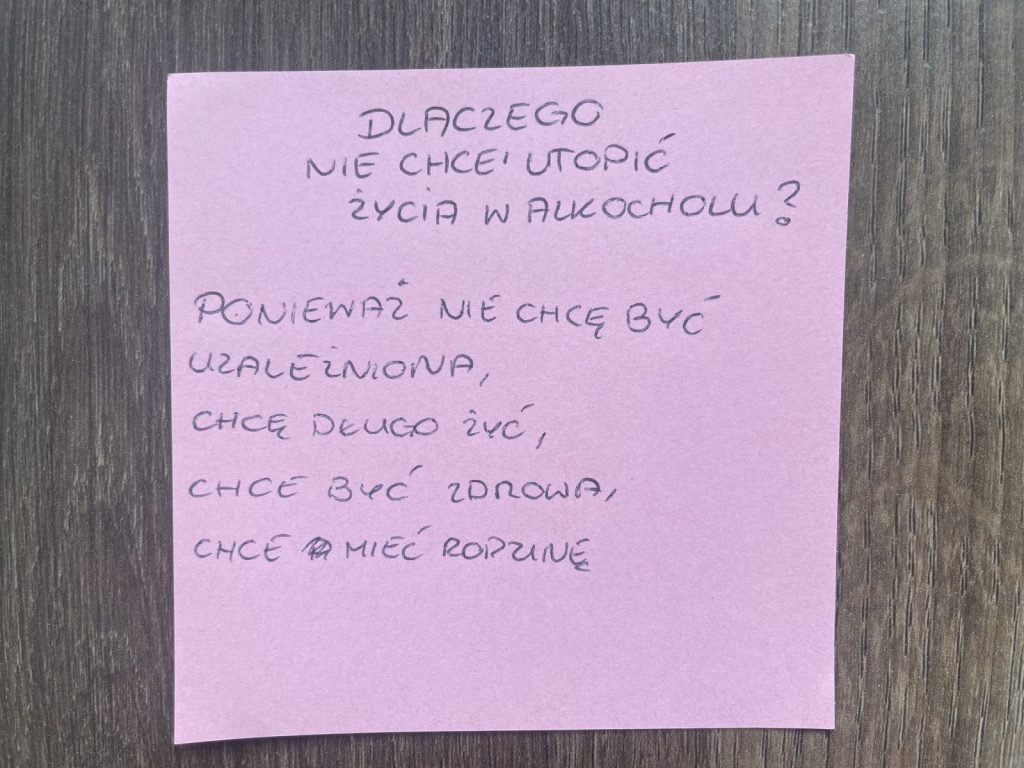 DLACZEGO
NIE CHCE' UTOPIĆ
ŻYCIA W ALKOCHOLU?
PONIEWAŻ NIE CHCĘ BYĆ
UZALEŻNIONA,
CHCĘ DŁUGO ŻYĆ,
CHCE BYĆ ZDROWA,
CHCE MIEĆ RODZINĘ